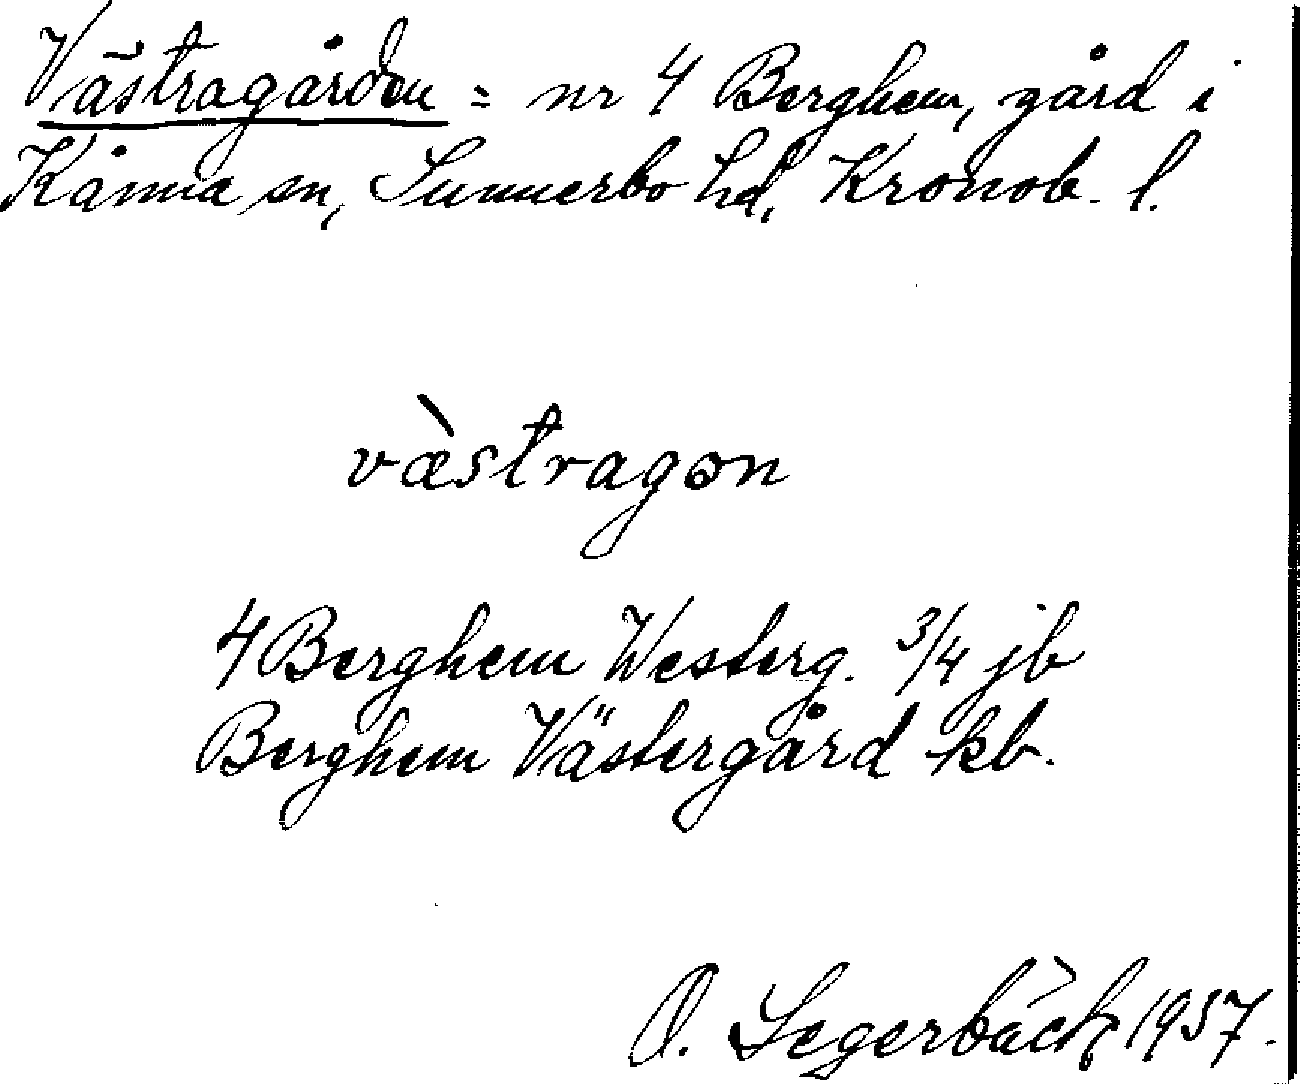 Västragården = nr 4 Berghem, gård i
Kånna sn, Sunnerbo hd, Kronob. l.
væ̀stragɔn
4 Berghem Westerg. 3/4 jb
Berghem Västergård kb.
O. Segerbäck 1957.